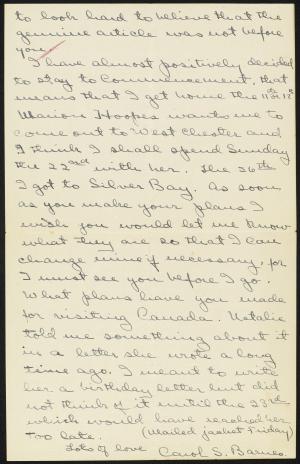 to look hard to believe that the
genuine article was not before
you.
I have almost positively decided
to stay to Commencement, that
means that I get home the 11th or 12th
Marion Hoopes wants me to
come out to West Chester and
I think I shall spend Sunday
the 22nd with her. The 26th
I go to Silver Bay. As soon
as you make your plans I
wish you would let me know
what they are so that I can
change mine if necessary, for
I must see you before I go.
What plans have you made
for visiting Canada. Natalie
told me something about it
in a letter she wrote a long
time ago. I meant to write
her a birthday letter but did
not think of it until the 23rd
which would have reached her
too late. (Mailed jacket Friday)
Lots of love Carol S. Barnes.